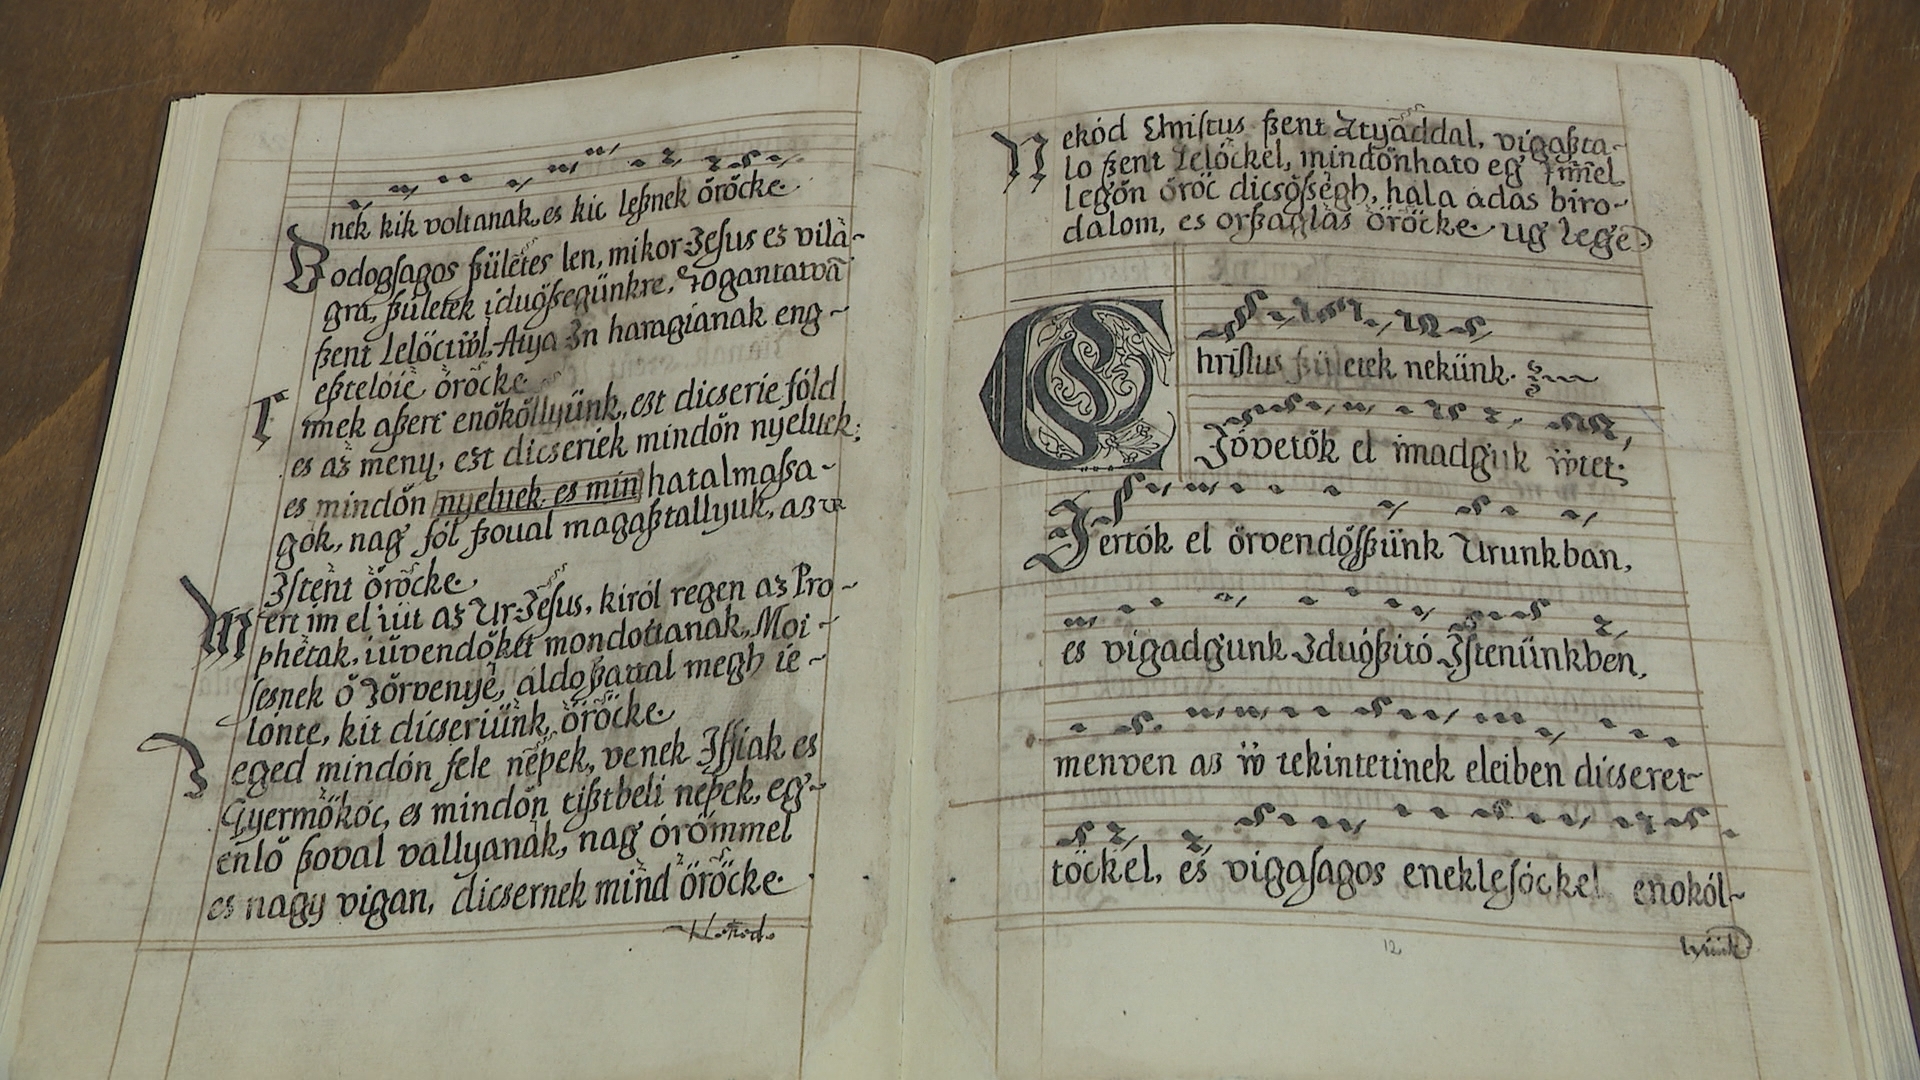 nek kik voltanak, es kic leßnek öröcke.
Bodogſagos ßületes len, mikor Jeſus ez vilá-
gra, ßületek iduößegünkre, Fogantatvā
ßent Lelöctwl, Atya Jn haragianak eng-
eßteloie öröcke.
Imek aßert enököllyünk, ezt dicserie föld
es az meny, ezt dicseriek mindön nyeluek:
es mindön nyeluek es min hatalmaſsa-
gok, nag föl ßoual magaßtallyuk, az vr
Jſtent öröcke.
Mert im el iüt az Ur Jeſus, kiröl regen az Pro-
phetak, iüvendöket mondottanak, Moi-
ſesnek ö Törvenye, aldoßattal megh ie-
lönte, kit dicseriünk öröcke.
Teged mindön fele nepek, venek Jffiak es
Gyermököc, es mindön tißtbeli nepek, eg-
enlö ßoval vallyanak, nag örömmel
es nagy vigan, dicsernek mind öröcke.
Nekod Christus ßent Atyāddal, vigaßta-
lo ßent Lelöckel, mindönhato eg
legön öröc dicsößegh, hala adas biro-
dalom, es orßaglas öröcke ug lege
Chriſtus ßületek nekünk.
Jövetök el imadguk wtet:
Jertök el örvendößßünk Urunkban,
es vigadgunk Jduößitö Jſtenünkben,
menven az w tekintetinek eleiben dicseret-
töckel, es vigaſagos enekleſöckel enököl-
12
lyünk